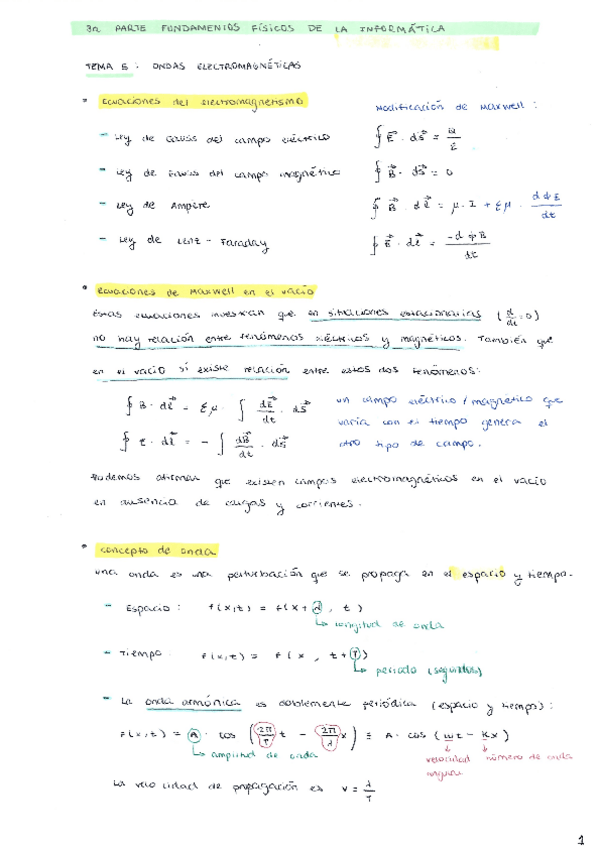 3a PARTE FUNDAMENTOS FÍSICOS DE LA INFORMÁTICA
TEMA 5: ONDAS ELECTROMAGNÉTICAS
• ecuaciones del electromagnetismo
Modificación de Maxwell:
- Ley de Gauss del campo eléctrico ∮ E⃗ · ds⃗ = Q/ε
- Ley de Gauss del campo magnético ∮ B⃗ · ds⃗ = 0
- Ley de Ampere ∮ B⃗ · dℓ⃗ = μ · I + εμ · dϕE/dt
- Ley de Lenz - Faraday ∮ E⃗ · dℓ⃗ = -dϕB/dt
• ecuaciones de Maxwell en el vacío
Estas ecuaciones muestran que en situaciones estacionarias (d/dt = 0)
no hay relación entre fenómenos eléctricos y magnéticos. También que
en el vacío sí existe relación entre estos dos fenómenos:
∮ B · dℓ⃗ = εμ · ∫ dE⃗/dt · ds⃗
∮ E · dℓ⃗ = - ∫ dB⃗/dt · ds⃗
un campo eléctrico/magnético que
varía con el tiempo genera el
otro tipo de campo.
Podemos afirmar que existen campos electromagnéticos en el vacío
en ausencia de cargas y corrientes.
• concepto de onda
una onda es una perturbación que se propaga en el espacio y tiempo.
- Espacio: f(x,t) = f(x + λ, t)
↳ longitud de onda
- Tiempo: f(x,t) = f(x, t + T)
↳ periodo (segundos)
- La onda armónica es doblemente periódica (espacio y tiempo):
f(x,t) = A · cos (2π/T t - 2π/λ x) ≡ A · cos (ωt - Kx)
↳ amplitud de onda
velocidad angular
número de onda
La velocidad de propagación es v = λ/T
1